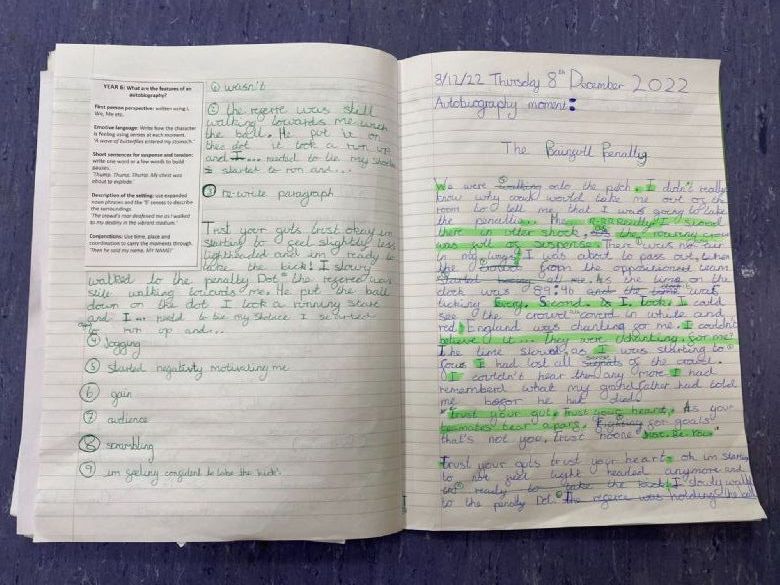 YEAR 6: What are the features of an
autobiography?
First person perspective: written using I,
We, Me etc.
Emotive language: Write how the character
is feeling using senses at each moment.
'A wave of butterflies entered my stomach.'
Short sentences for suspense and tension:
write one word or a few words to build
pauses.
'Thump. Thump. Thump. My chest was
about to explode.'
Description of the setting: use expanded
noun phrases and the '5' senses to describe
the surroundings:
'The crowd's roar deafened me as I walked
to my destiny in the vibrant stadium.'
Conjunctions: Use time, place and
coordination to carry the moments through.
'Then he said my name, MY NAME!'
① wasn't
② the referre was still
walking towards me with
the ball. He put it on
thee dot it took a run up
and I... needed to tie my
I started to run and...
③ re-write paragraph
Trust your guts, trust okay im
starting to feel slightly less
lightheaded and im ready to
take the kick! I slowy
walked to the penalty Dot the regeree was
still walking towards me. He put the ball
down on the dot I took a running start
and I... need to tie my I started
to run up and...
④ jogging
⑤ started negativity motivating me
⑥ gain
⑦ audience
⑧ scrambling
⑨ im feeling confident to take the kick.
8/12/22 Thursday 8th December 2022
Autobiography moment:
The Penalty
We were walking onto the pitch. I didn't really
know why coach would take me out of the
room to tell me that I was going to take
the penalties... Me I stood
there in utter shock, as the roaring crowd
was full of suspense. There was no air
in my lungs I was about to pass out, when
the crowd from the team
started at me. As the time on the
clock was 89:46 and the was
ticking Every. Second. I. Took. I could
see the crowd coverd in white and
red. England was chanting for me. I couldn't
believe it... They were chanting for me!
The time slowed, as I was starting to
I had lost all of the crowd.
I couldn't hear them any more I had
rememberd what my grandfather had told
me he had died
"Trust your gut. Trust your heart. As your
te-mates tear apart. Fighting for goals
that's not you, trust noone Just. Be. You."
trust your guts trust your heart oh im starting
to not feel light headed anymore and
ready to take the kick I slowly walk
to the penalty Dot. The regeree was holding the ball